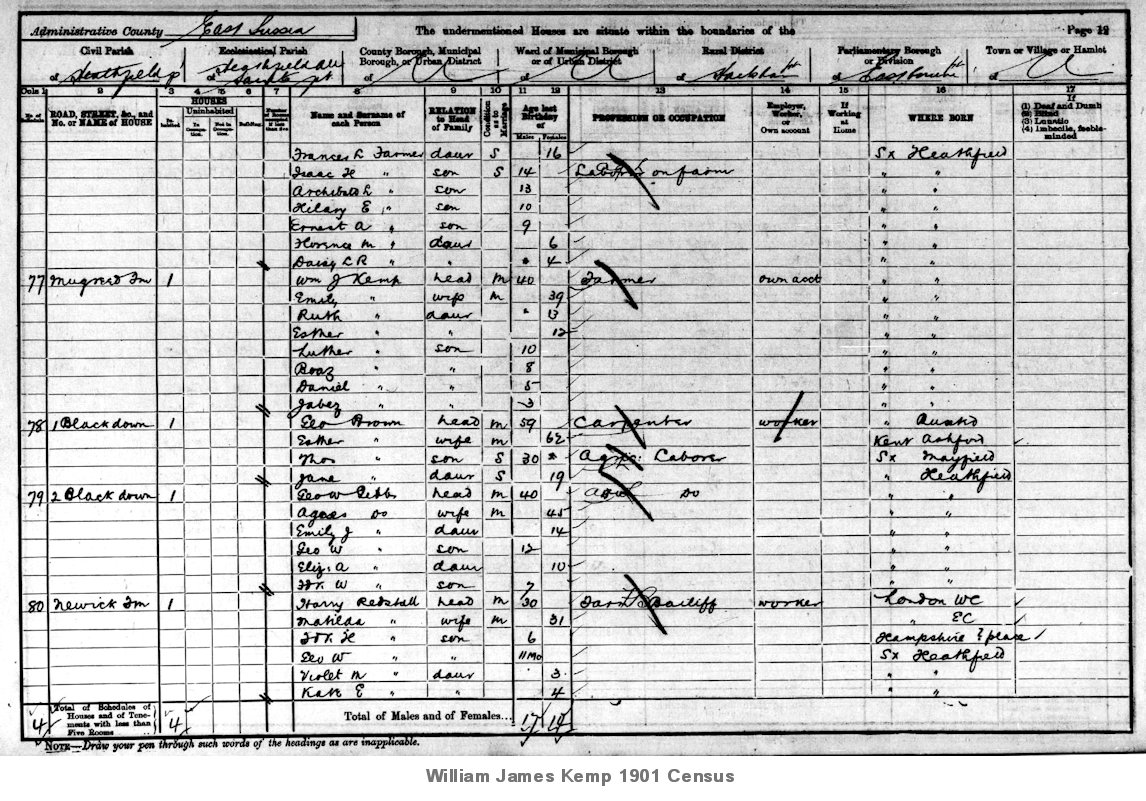 Administrative County East Sussex The undermentioned Houses are situate within the boundaries of the Page 19
Civil Parish Ecclesiastical Parish County Borough, Municipal Borough, or Urban District Ward of Municipal Borough or of Urban District Rural District Parliamentary Borough or Division Town or Village or Hamlet
of Heathfield pt of Heathfield All Saints pt of of of Hailsham pt of Eastbourne pt of
Cols 1 2 3 4 5 6 7 8 9 10 11 12 13 14 15 16 17
No. of ROAD, STREET, &c., and No. or NAME of HOUSE HOUSES In-habited Uninhabited In Occupation. Not in Occupation. Building. Name and Surname of each Person RELATION to Head of Family Condition as to Marriage Age last Birthday of Males Females PROFESSION OR OCCUPATION Employer, Worker, or Own account If Working at Home WHERE BORN If (1) Deaf and Dumb (2) Blind (3) Lunatic (4) Imbecile, feeble-minded
Frances L Farmer daur S 16 Sx Heathfield
Isaac H " son S 14 on farm " "
Archibald L " son 13 " "
Hilary E " son 10 " "
Ernest A " son 9 " "
Florence M " daur 6 " "
Daisy L R " " 4 " "
77 Fm 1 Wm J Kemp head M 40 Farmer own acct " "
Emily " wife M 39 " "
Ruth " daur 13 " "
Esther " " 12 " "
Luther " son 10 " "
Boaz " " 8 " "
Daniel " " 5 " "
Jabez " " 3 " "
78 1 Black down 1 Geo Brown head M 59 Carpenter worker "
Esther " wife M 62 Kent Ashford
Thos " son S 30 Labourer Sx Mayfield
Jane " daur S 19 " Heathfield
79 2 Black down 1 Geo W head M 40 Do " "
Agnes Do wife M 45 " "
Emily J " daur 14 " "
Geo W " son 12 " "
Eliz: A " daur 10 " "
W " son 7 " "
80 Newick Fm 1 Harry Redshall head M 30 Farm Bailiff worker London WC
Matilda " wife M 31 " EC
H " son 6 Hampshire ? place
Geo W " " 11 Mo Sx Heathfield
Violet M " daur 3 " "
Kate E " " 4 " "
4 Total of Schedules of Houses and of Tenements with less than Five Rooms 4 Total of Males and of Females... 17 14
NOTE—Draw your pen through such words of the headings as are inapplicable.
William James Kemp 1901 Census